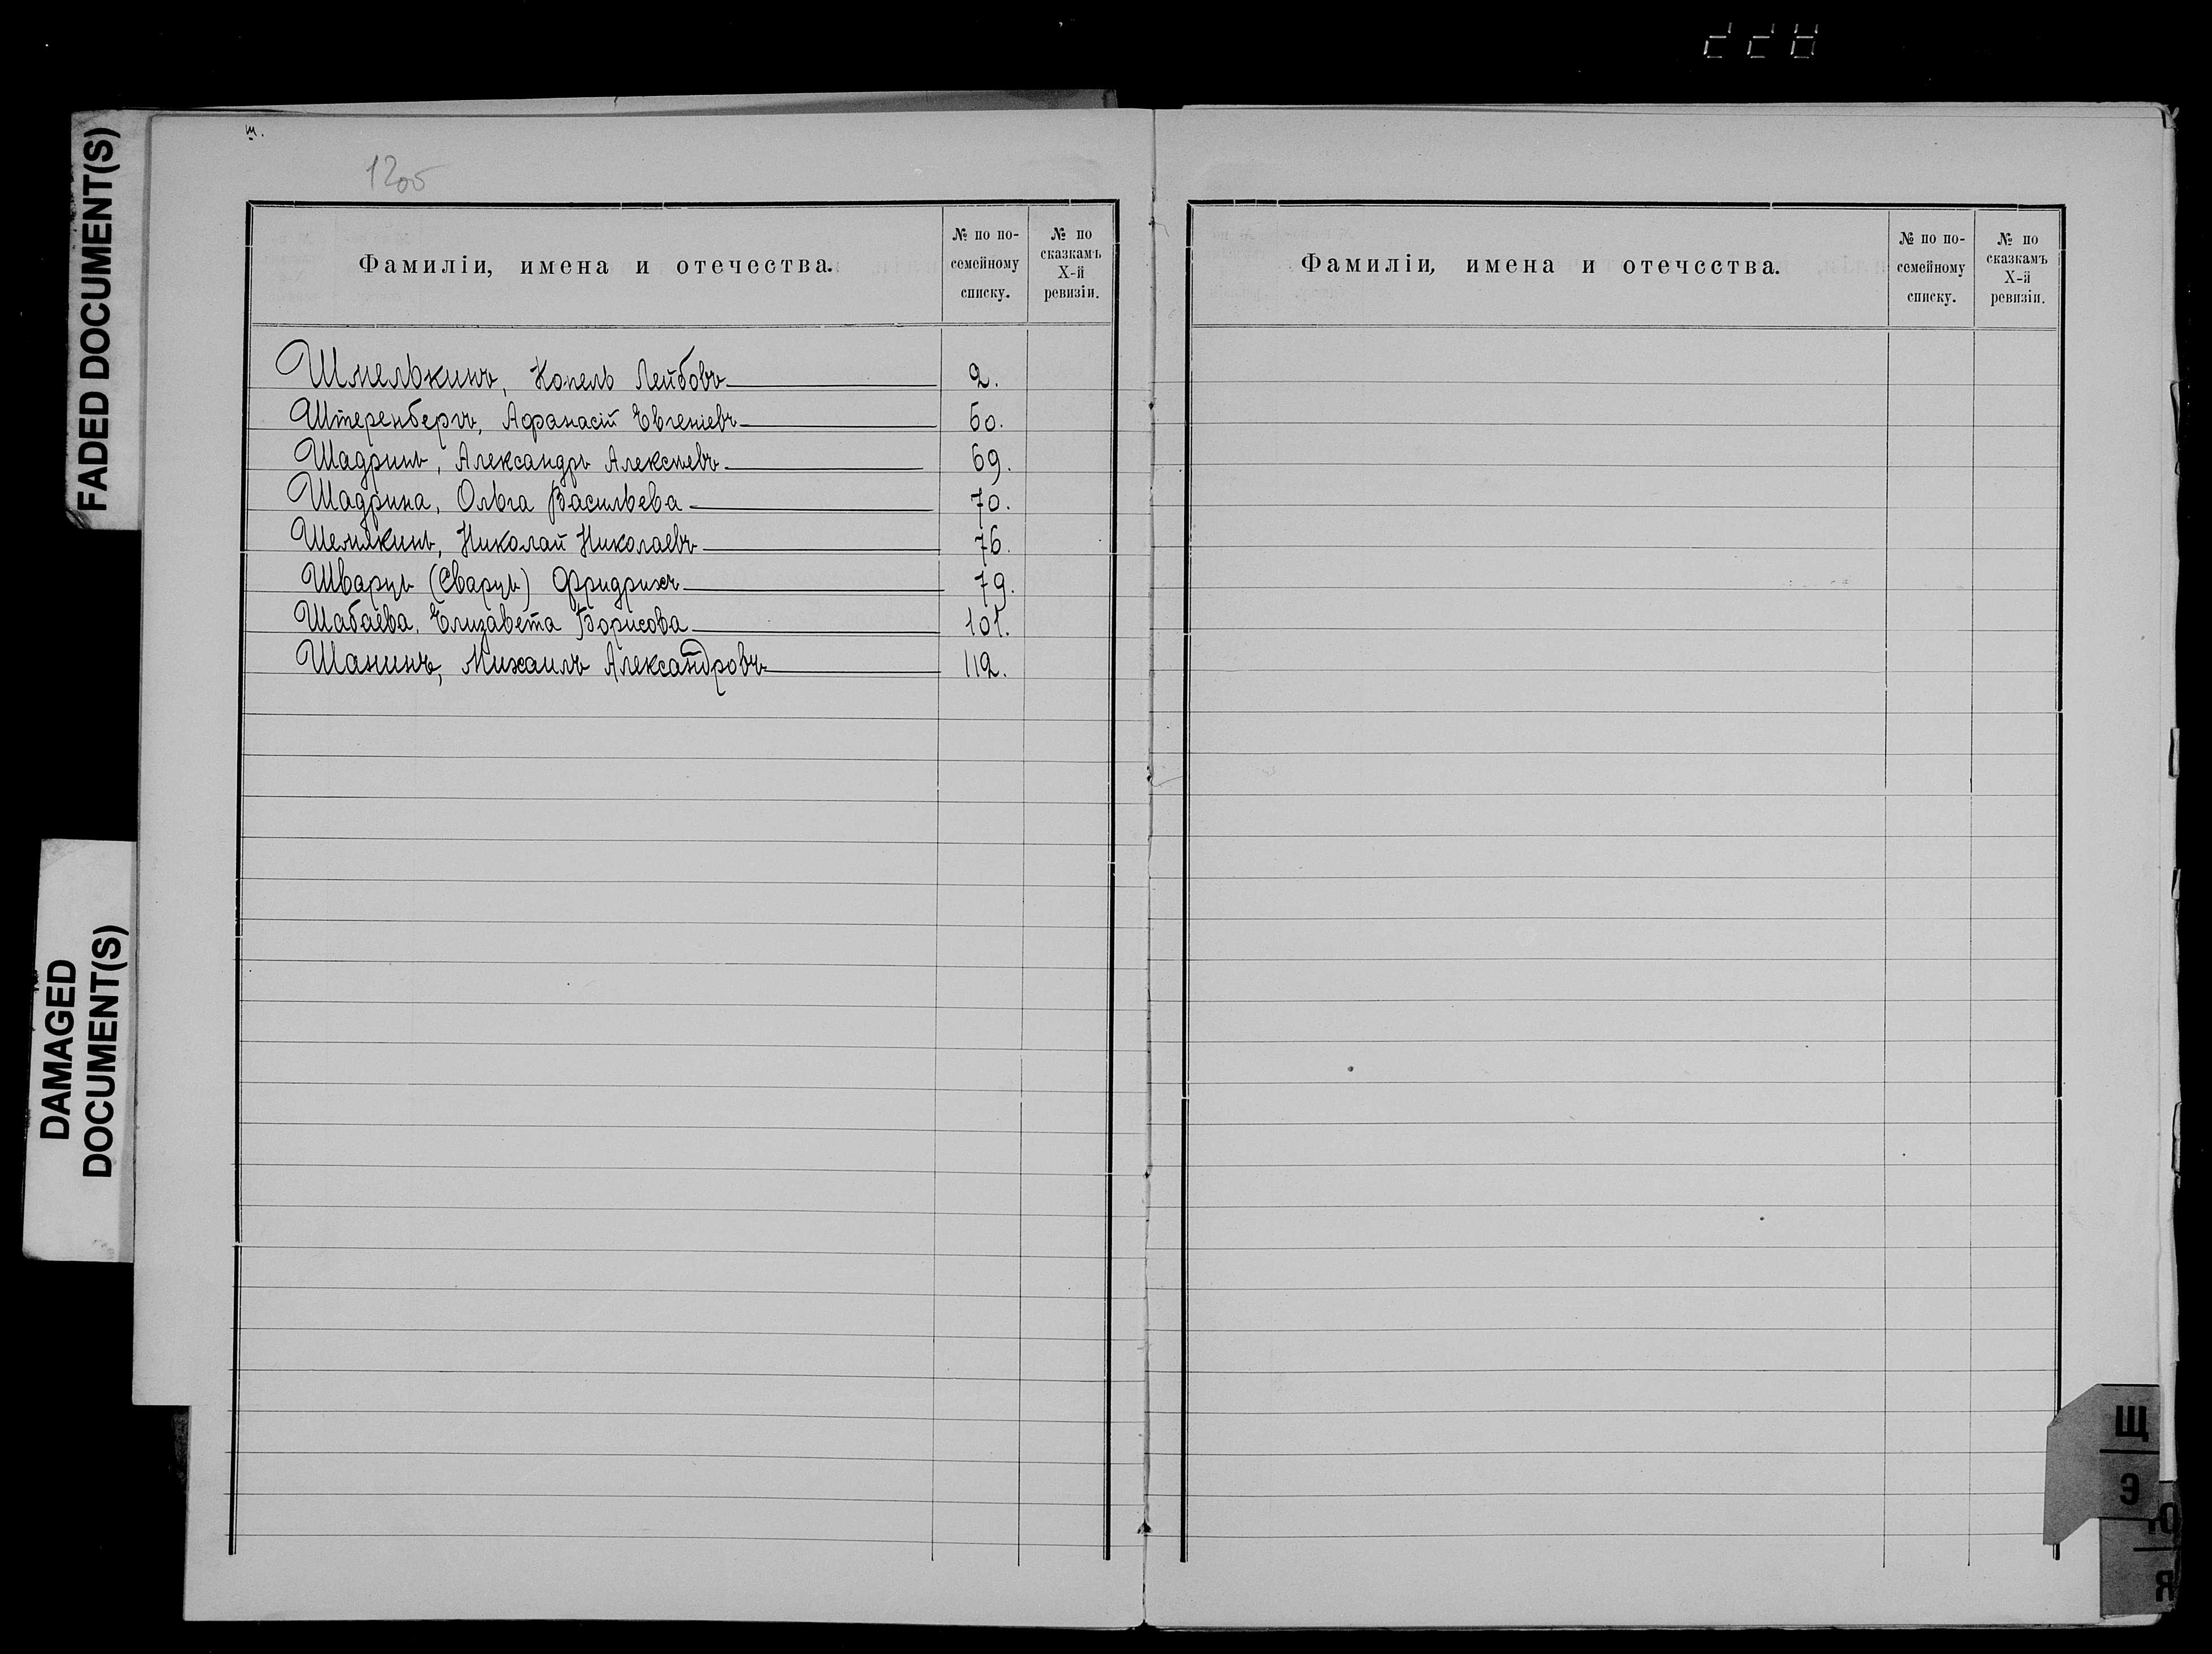 FADED DOCUMENT(S)
DAMAGED
DOCUMENT(S)
ш.
1205
Фамиліи, имена и отечества.
№ по по-
семейному
списку.
№ по
сказкамъ
X-й
ревизіи.
Шмелькинъ, Копель Лейбовъ 2.
Штеренбергъ, Афанасій Евгеніевъ 60.
Шадринъ, Александръ Алексѣевъ 69.
Шадрина, Ольга Васильева 70.
Шемякинъ, Николай Николаевъ 76.
Шварцъ (Сварцъ) Фридрихъ 79.
Шабаева, Елизавета Борисова 101.
Шанинъ, Михаилъ Александровъ 112.
Фамиліи, имена и отечества.
№ по по-
семейному
списку.
№ по
сказкамъ
X-й
ревизіи.
Щ
Э
Ю
Я